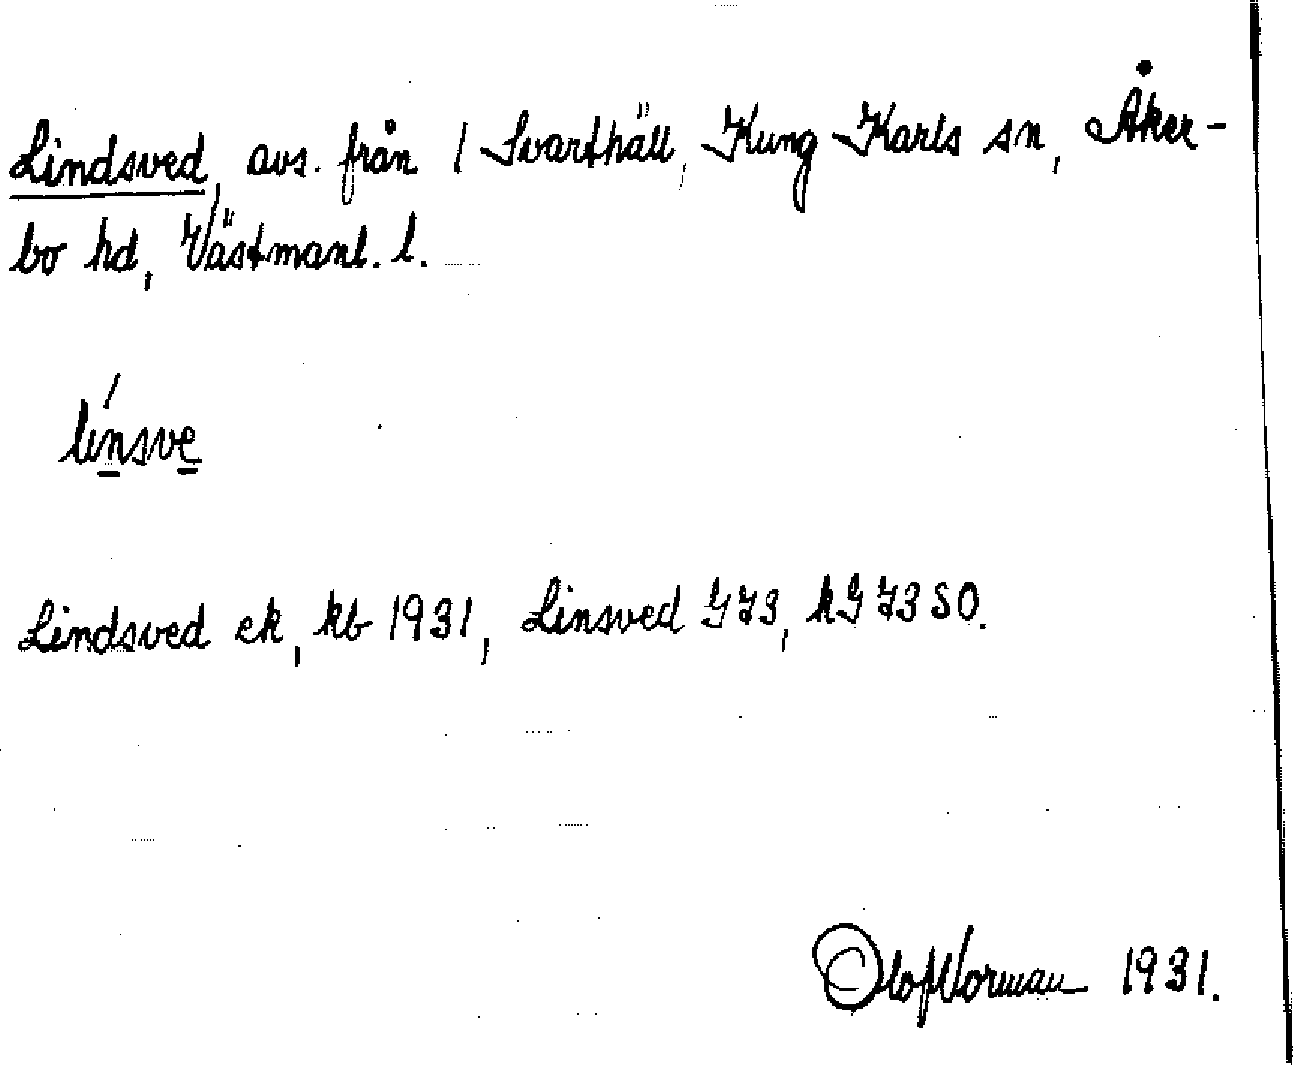 Lindsved, avs. från 1 Svarthäll, Kung Karls sn, Åker-
bo hd, Västmanl. l.
línsve
Lindsved ek, kb 1931, Linsved GJ3, kGJ3SO.
Olof Norman 1931.